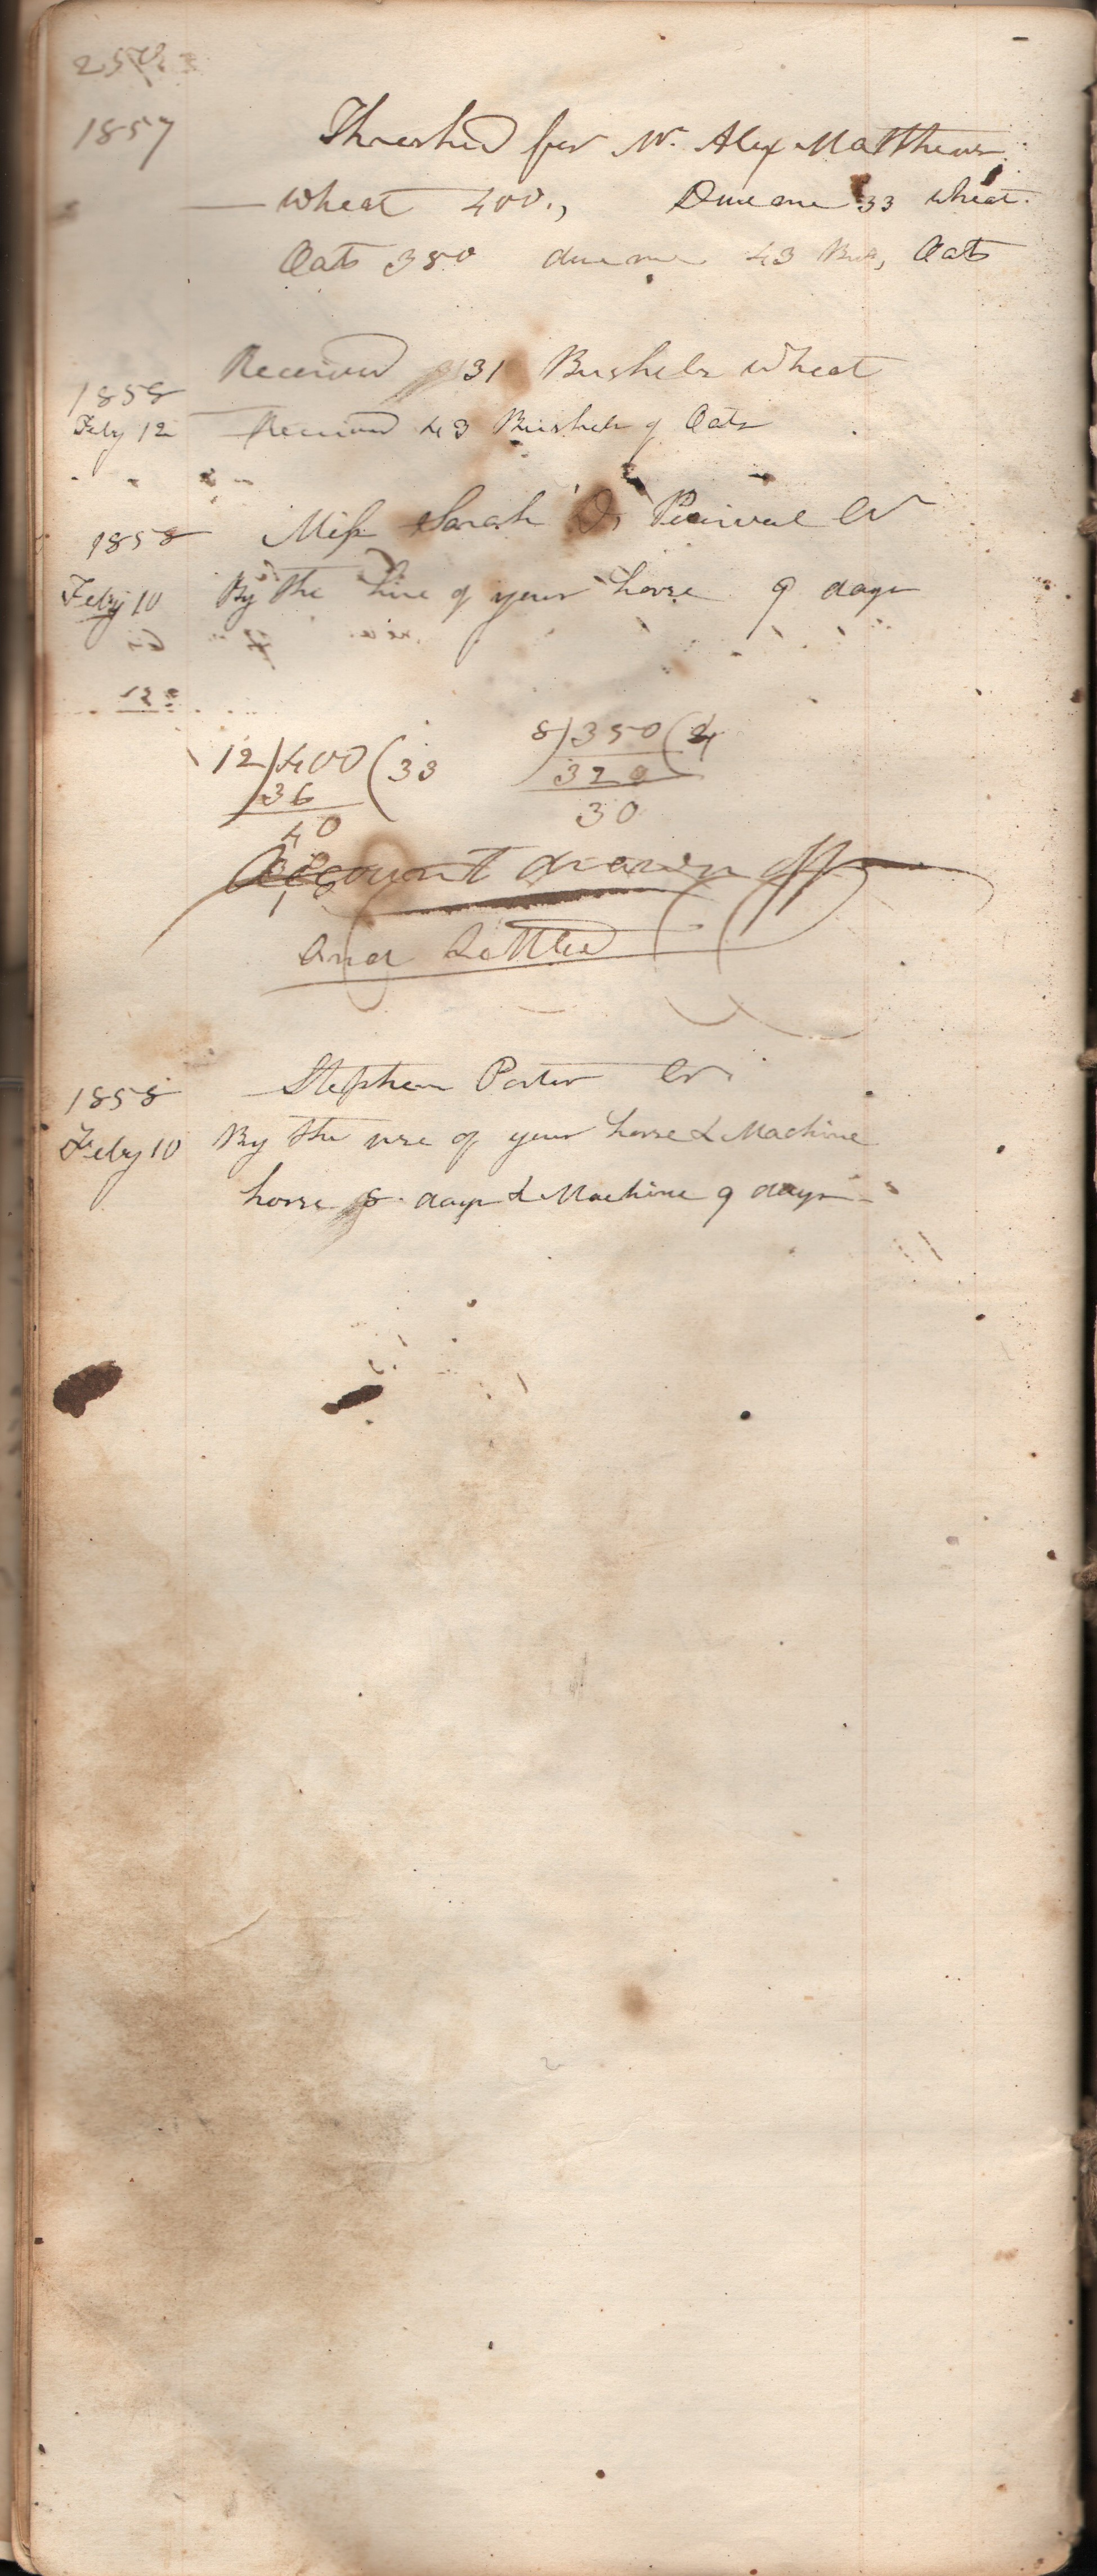 1857 Threshed for Mr. Alex Matthews
wheat 400., Due me 33 wheat.
Oats 350 due me 43 Bus, Oats
Received 31 Bushels wheat
1858
Feby 12 Received 43 Bushels of Oats
1858 Miss Sarah D, Percival Cr
Feby 10 By the hire of your horse 9 days
12
12)400(33 8)350(4
36 320
40 30
Account drawn off
And Settled
1858 Stephen Porter Cr.
Feby 10 By the use of your horse & Machine
horse 8 days & Machine 9 days